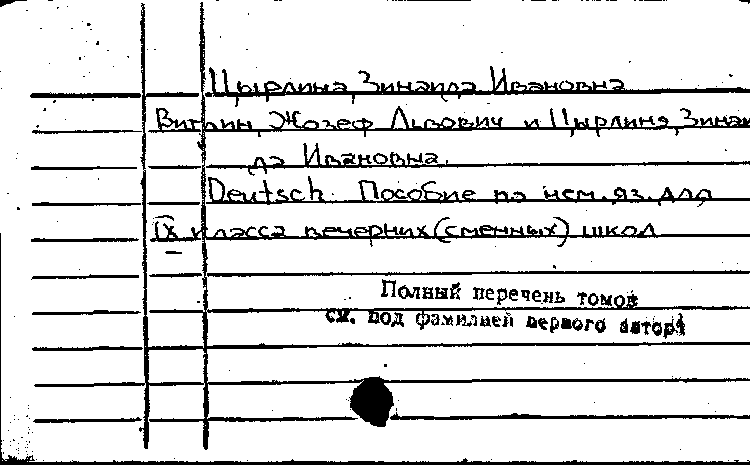 Цырлина, Зинаида Ивановна
Витлин, Жозеф Львович и Цырлина, Зинаи
да Ивановна.
Deutsch. Пособие по нем. яз. для
IX класса вечерних (сменных) школ
Полный перечень томов
см. под фамилией первого автора